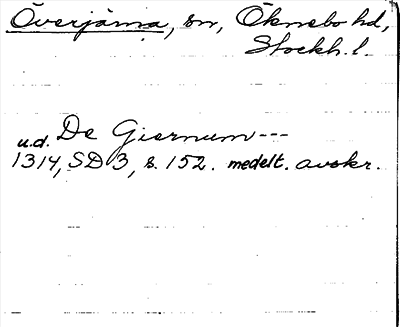 Överjärna, sn, Öknebo hd,
Stockh. l.
u.d. De Giernum ---
1314, SD 3, s. 152. medelt. avskr.